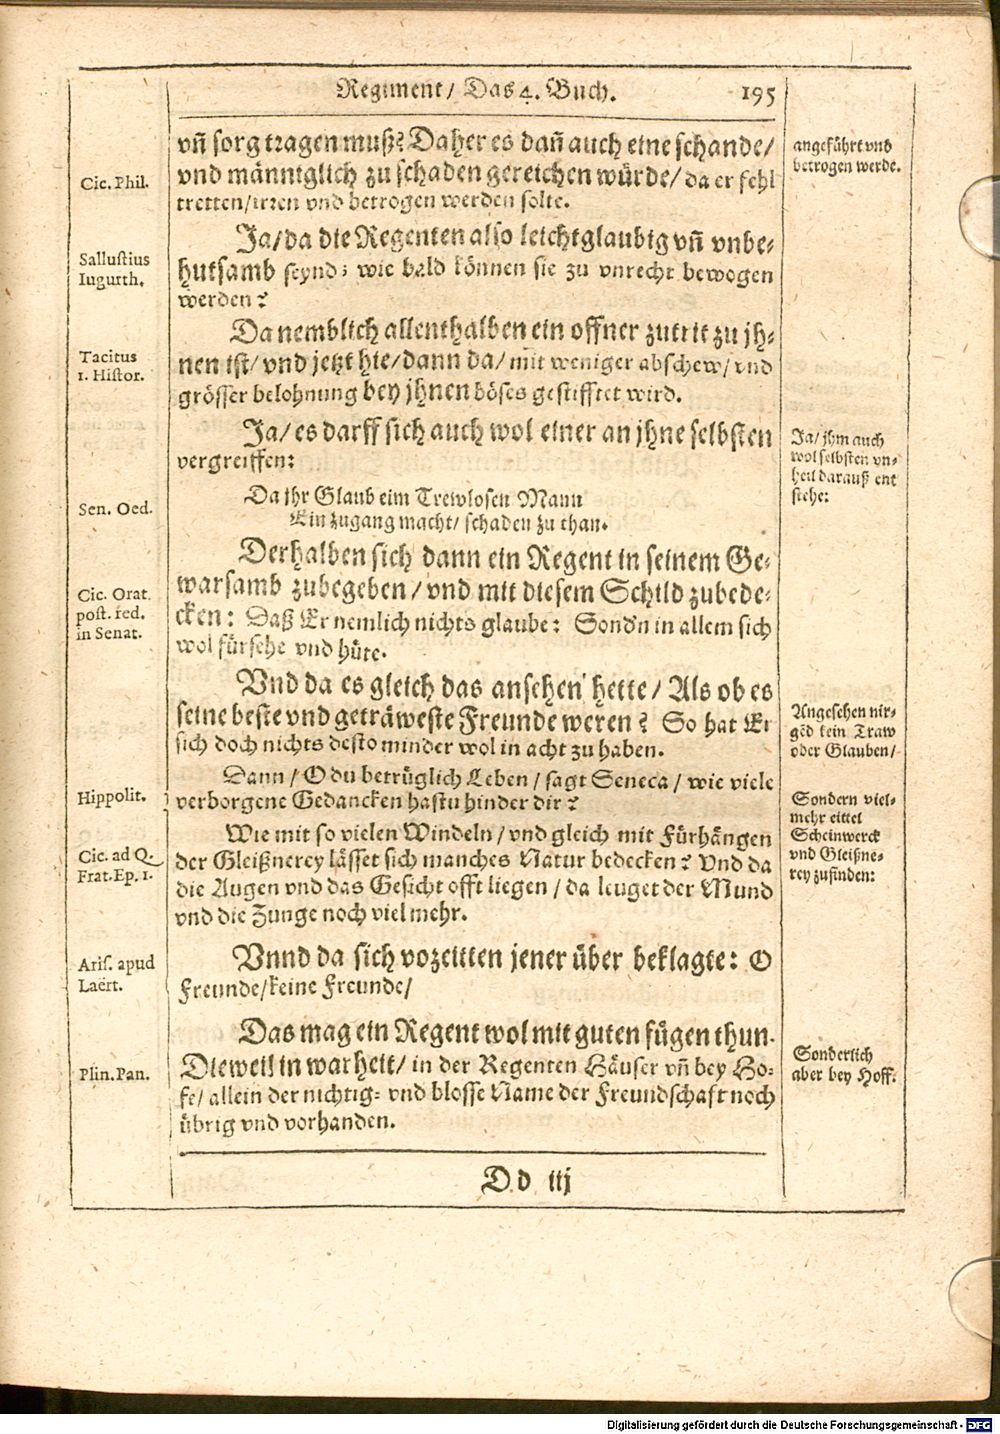 Regiment/ Das 4. Buch. 195
vñ sorg tragen muß? Daher es dañ auch eine schande/
vnd männiglich zu schaden gereichen würde/ da er fehl
tretten/irren vnd betrogen werden solte.
Ja/da die Regenten also leichtglaubig vñ vnbe-
hutsamb seynd; wie bald können sie zu vnrecht bewogen
werden?
Da nemblich allenthalben ein offner zutrit zu jh-
nen ist/ vnd jetzt hie/dann da/ mit weniger abschew/ vnd
grösser belohnung bey jhnen böses gestifftet wird.
Ja/ es darff sich auch wol einer an jhne selbsten
vergreiffen:
Da ihr Glaub eim Trewlosen Mann
Ein zugang macht/ schaden zu than.
Derhalben sich dann ein Regent in seinem Ge-
warsamb zubegeben/ vnd mit diesem Schild zubede-
cken: Daß Er nemlich nichts glaube: Sond'n in allem sich
wol fürsehe vnd hüte.
Vnd da es gleich das ansehen hette/ Als ob es
seine beste vnd geträweste Freunde weren? So hat Er
sich doch nichts desto minder wol in acht zu haben.
Dann/ O du betrüglich Leben/ sagt Seneca/ wie viele
verborgene Gedancken hastu hinder dir?
Wie mit so vielen Windeln/ vnd gleich mit Fürhängen
der Gleißnerey lässet sich manches Natur bedecken? Vnd da
die Augen vnd das Gesicht offt liegen/ da leuget der Mund
vnd die Zunge noch viel mehr.
Vnnd da sich vozeitten jener über beklagte: O
Freunde/keine Freunde/
Das mag ein Regent wol mit guten fügen thun.
Dieweil in warheit/ in der Regenten Häuser vñ bey Ho-
fe/ allein der nichtig- vnd blosse Name der Freundschafft noch
übrig vnd vorhanden.
Dd iij
Cic. Phil.
Sallustius
Iugurth.
Tacitus
1. Histor.
Sen. Oed.
Cic. Orat.
post. red.
in Senat.
Hippolit.
Cic. ad Q.
Frat. Ep. 1.
Aris. apud
Laërt.
Plin. Pan.
angeführt vnd
betrogen werde.
Ja/ jhm auch
wol selbsten vn-
heil darauß ent
stehe:
Angesehen nir-
gēd kein Traw
oder Glauben/
Sondern viel-
mehr eittel
Scheinwerck
vnd Gleißne-
rey zufinden:
Sonderlich
aber bey Hoff.
Digitalisierung gefördert durch die Deutsche Forschungsgemeinschaft - DFG